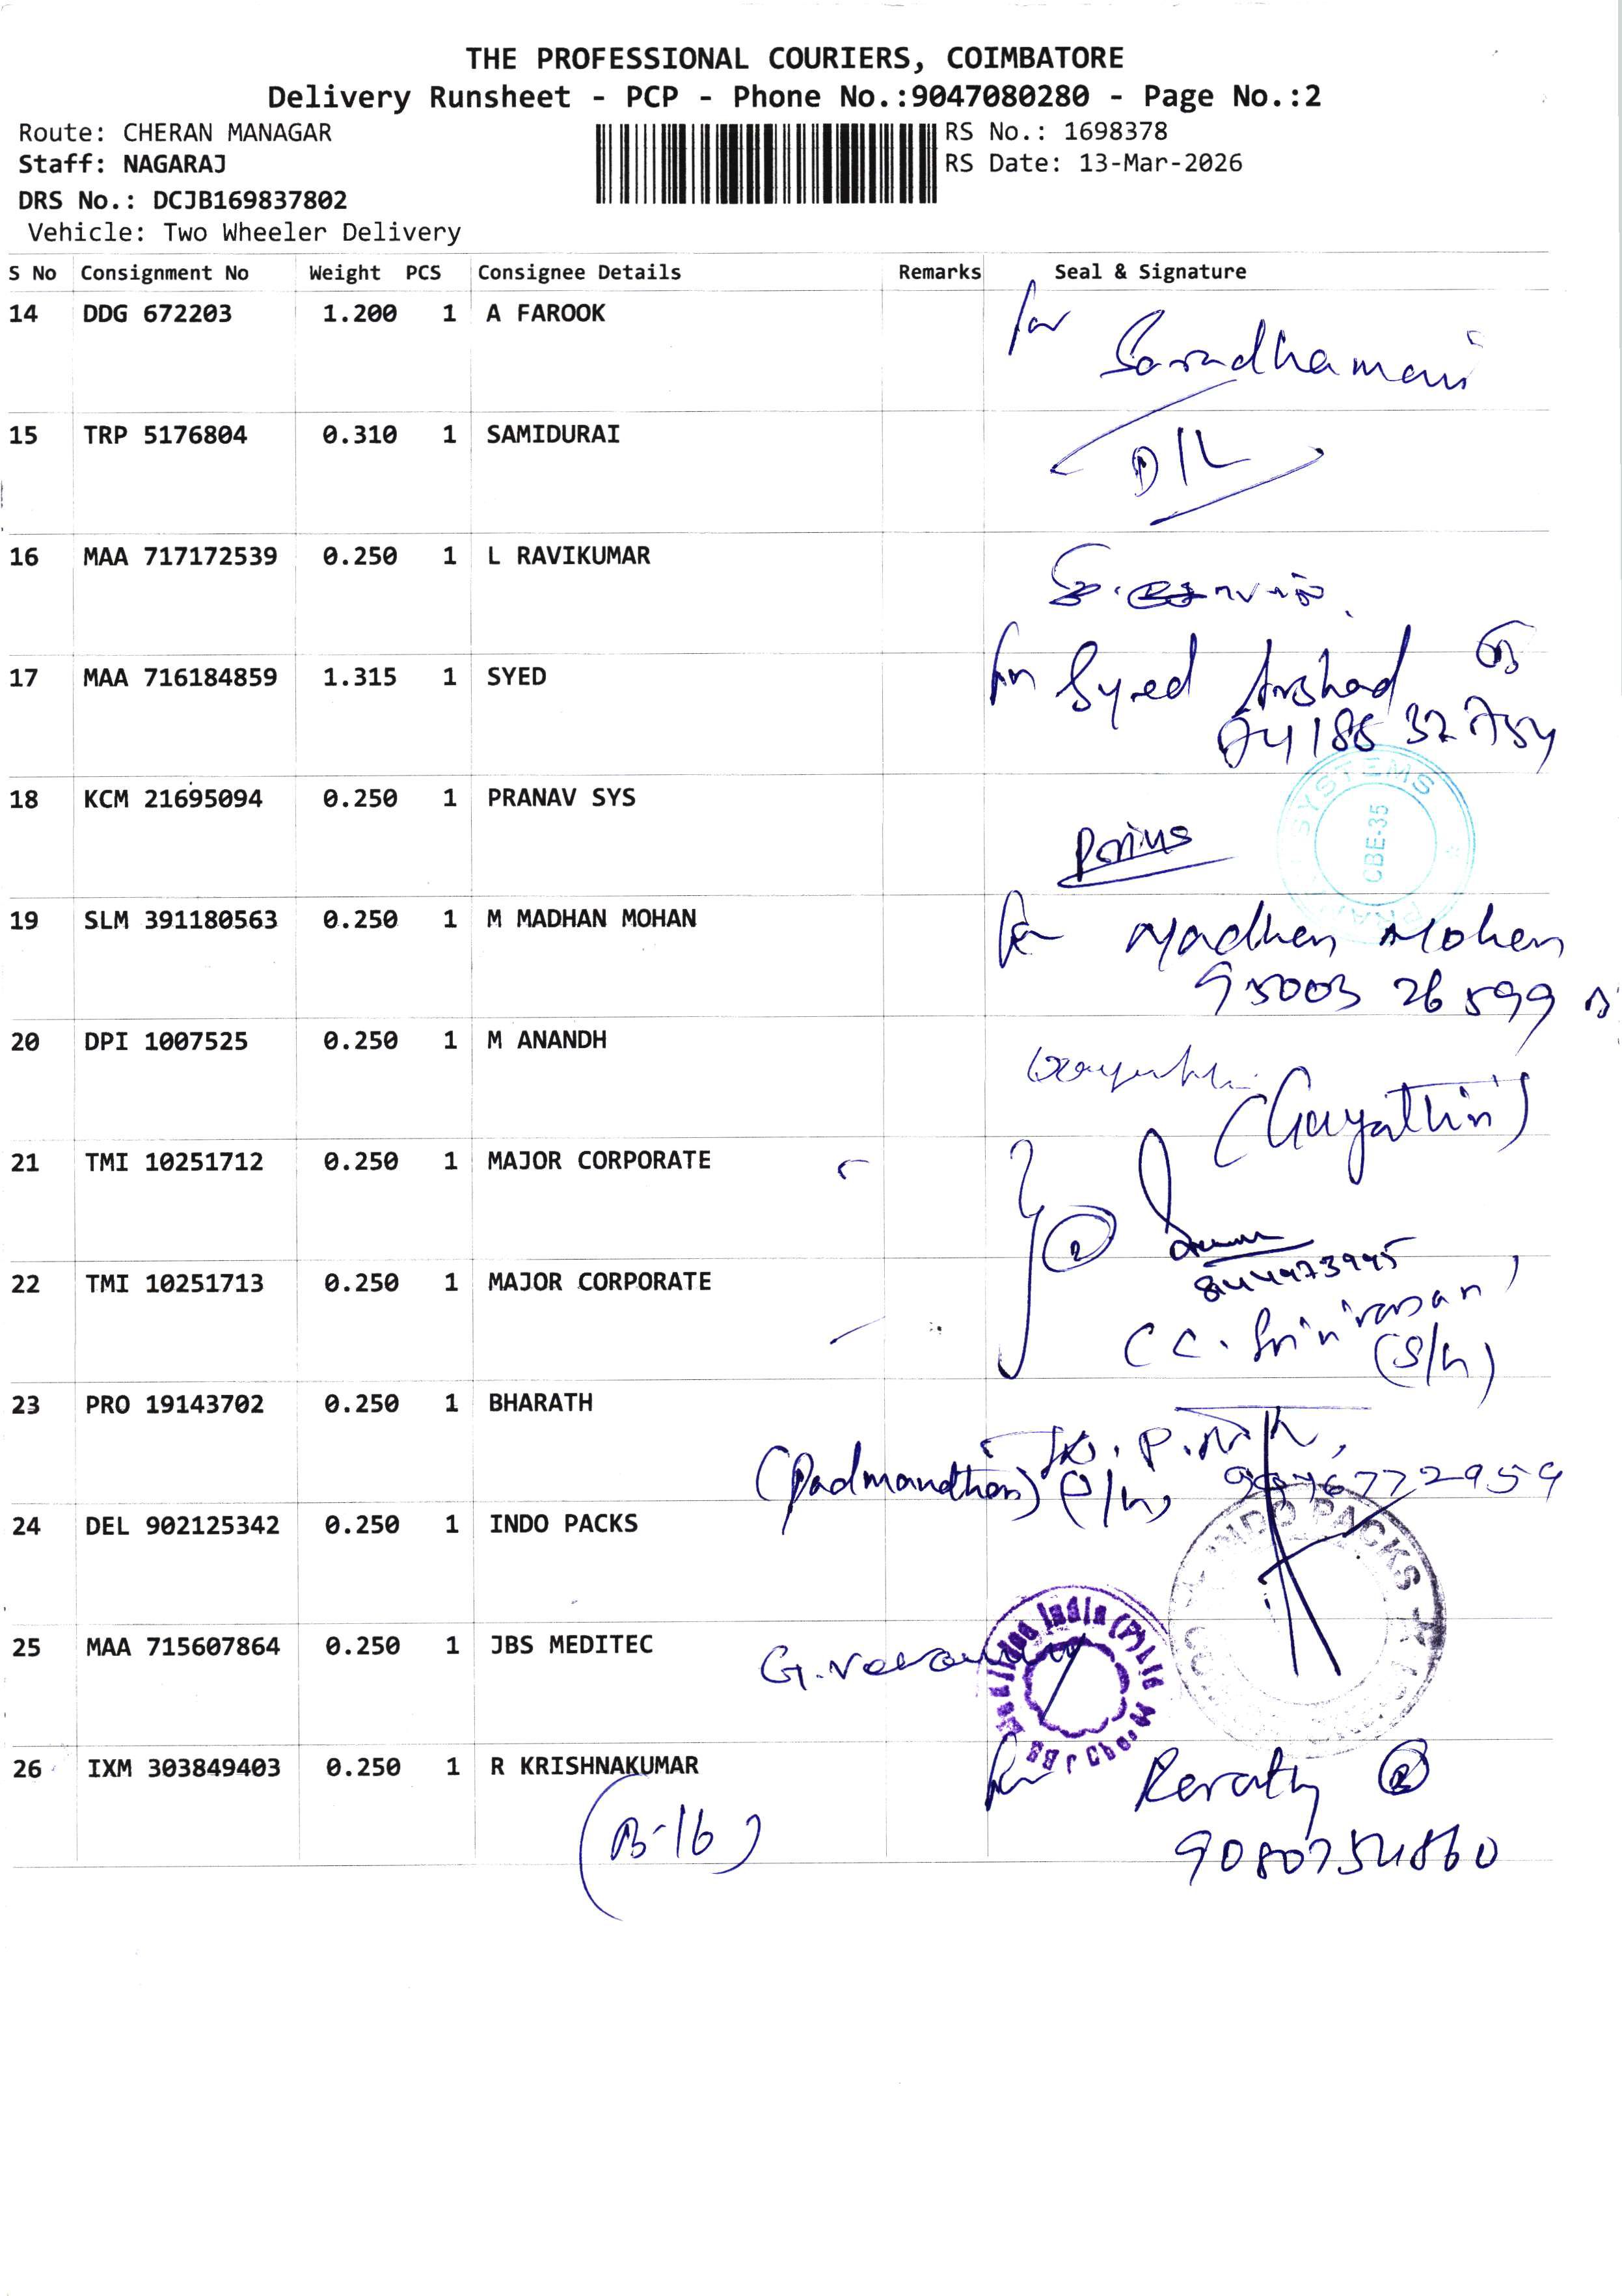 THE PROFESSIONAL COURIERS, COIMBATORE
Delivery Runsheet - PCP - Phone No.:9047080280 - Page No.:2
Route: CHERAN MANAGAR
RS No.: 1698378
Staff: NAGARAJ
RS Date: 13-Mar-2026
DRS No.: DCJB169837802
Vehicle: Two Wheeler Delivery
S No Consignment No Weight PCS Consignee Details Remarks Seal & Signature
14 DDG 672203 1.200 1 A FAROOK for
Saradhamani
15 TRP 5176804 0.310 1 SAMIDURAI D/L
16 MAA 717172539 0.250 1 L RAVIKUMAR
17 MAA 716184859 1.315 1 SYED for Syed Arshad
18 KCM 21695094 0.250 1 PRANAV SYS
SYSTEMS
CBE-35
19 SLM 391180563 0.250 1 M MADHAN MOHAN for Madhan Mohan
95003 26599
20 DPI 1007525 0.250 1 M ANANDH
(Gayathiri)
21 TMI 10251712 0.250 1 MAJOR CORPORATE
2
22 TMI 10251713 0.250 1 MAJOR CORPORATE
(C. Srinivasan)
(S/h)
23 PRO 19143702 0.250 1 BHARATH
(Padmanathan)
24 DEL 902125342 0.250 1 INDO PACKS
INDO PACKS
25 MAA 715607864 0.250 1 JBS MEDITEC
India (P) Ltd
26 IXM 303849403 0.250 1 R KRISHNAKUMAR for
(B-16)